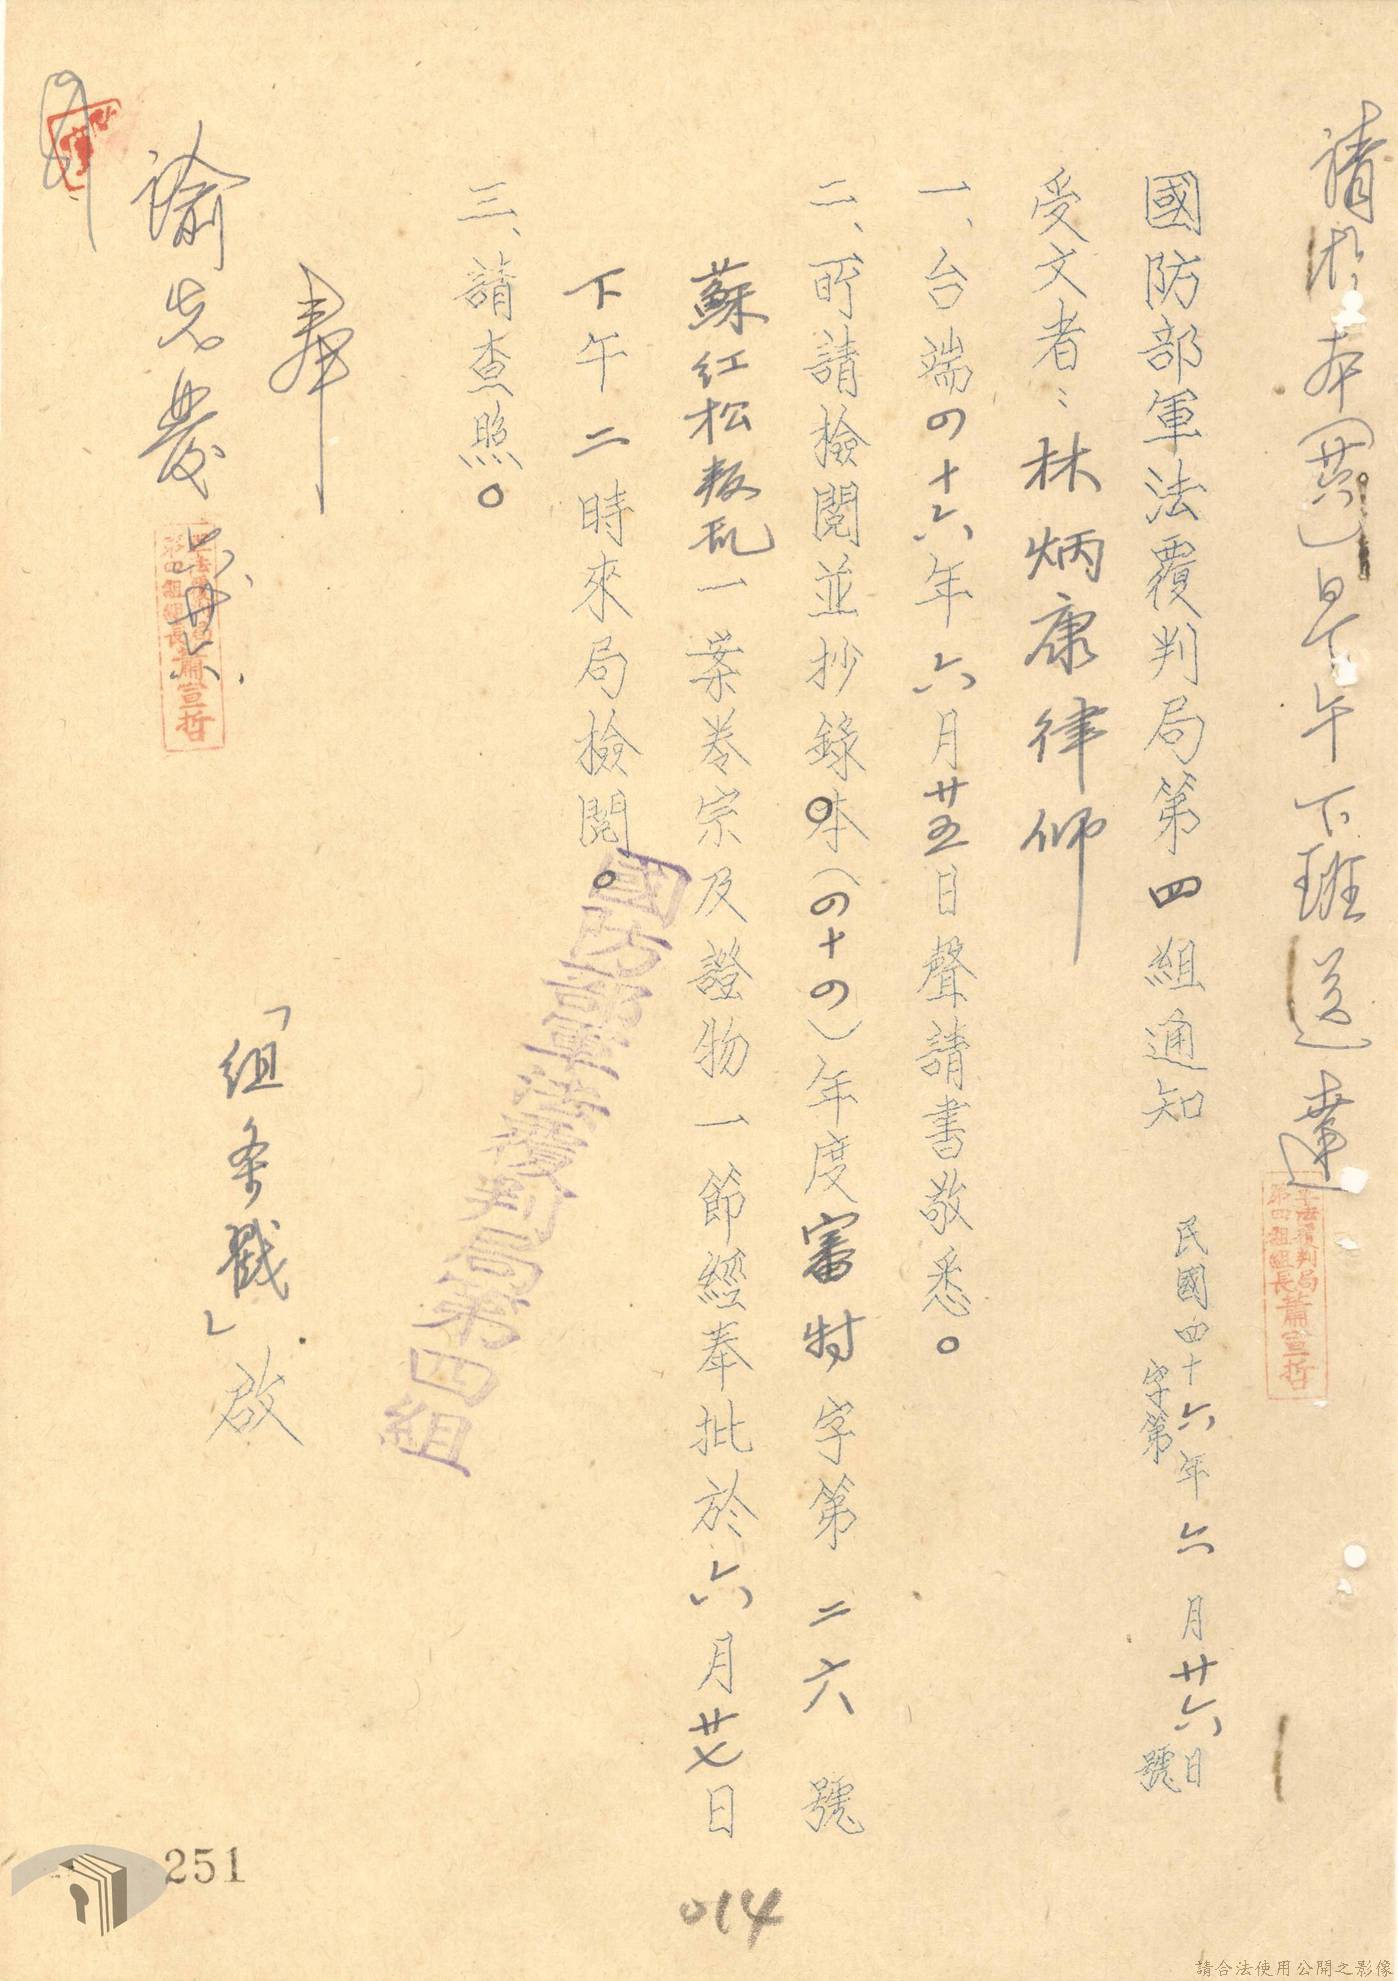 請於本(廿六)日下午下班送達
軍法覆判局
第四組組長蕭宣哲
國防部軍法覆判局第四組通知
民國四十六年六月廿六日
字第 號
受文者：林炳康律师
一、台端四十六年六月廿五日聲請書敬悉。
二、所請檢閱並抄錄。本(四十四)年度審特字第二六號
蘇紅松叛乱一案卷宗及證物一節經奉批於六月廿七日
下午二時來局檢閱。
三、請查照。
國防部軍法覆判局第四組
奉
諭先發
六、廿六、
軍法覆判局
第四組組長蕭宣哲
「組条戳」啟
251
014
請合法使用公開之影像